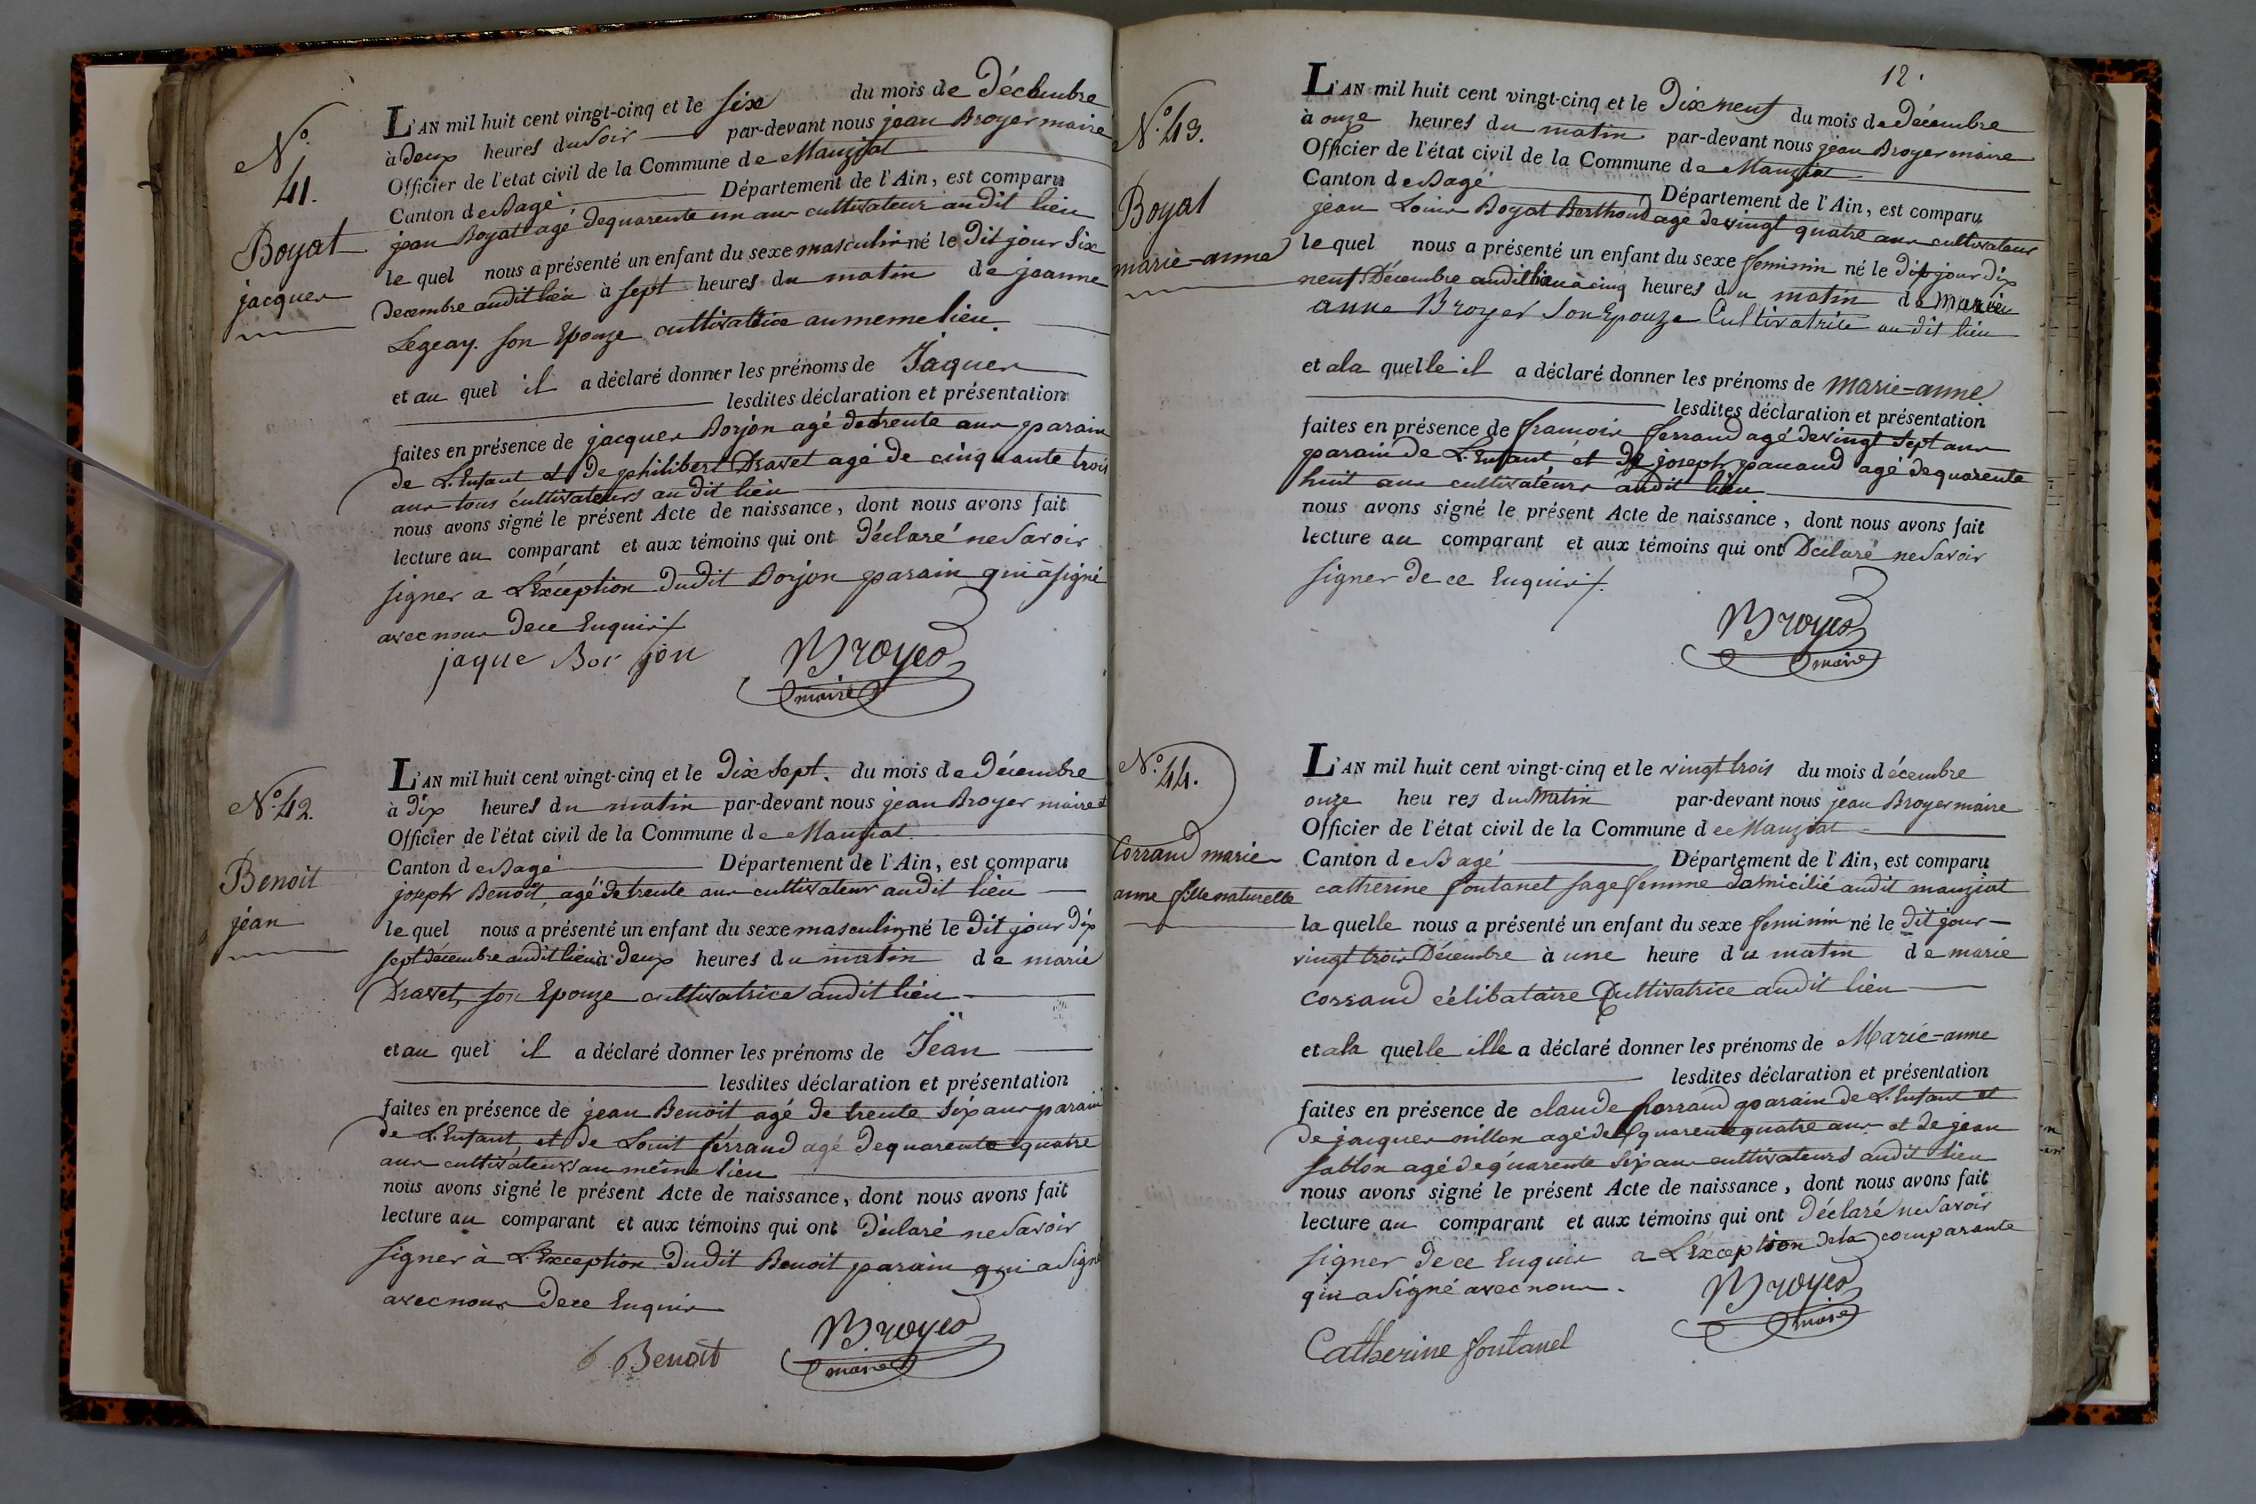 N.o
41.
Boyat
jacques
L'AN mil huit cent vingt-cinq et le six du mois de Décembre
à deux heures du soir par-devant nous jean Broyer maire
Officier de l'état civil de la Commune de Manziat
Canton de Bagé Département de l'Ain, est comparu
jean Boyat agé de quarente un ans cultivateur audit lieu
le quel nous a présenté un enfant du sexe masculin né le Dit jour Six
decembre audit lieu à sept heures du matin de jeanne
Legeay. son Epouze cultivatrice au meme lieu
et au quel il a déclaré donner les prénoms de Jaques
lesdites déclaration et présentation
faites en présence de jacques Borjon agé de trente ans parain
de L'Enfant et de philibert Dravet agé de cinquante trois
ans tous cultivateurs audit lieu
nous avons signé le présent Acte de naissance, dont nous avons fait
lecture au comparant et aux témoins qui ont Déclaré ne Savoir
signer a L'éxception Dudit Borjon parain qui à signé
avec nous De ce Enquis
jaque Bor jon Broyer
maire
N.o 42.
Benoit
jean
L'AN mil huit cent vingt-cinq et le Dix Sept. du mois de Décembre
à dix heures du matin par-devant nous jean Broyer maire et
Officier de l'état civil de la Commune de Manziat
Canton de Bagé Département de l'Ain, est comparu
joseph Benoit agé de trente ans cultivateur audit lieu
le quel nous a présenté un enfant du sexe masculin né le Dit jour Dix
sept décembre audit lieu à Deux heures du matin de marie
Dravet, son Epouze cultivatrice audit lieu
et au quel il a déclaré donner les prénoms de Jëan
lesdites déclaration et présentation
faites en présence de jean Benoit agé de trente Six ans parain
de L'Enfant, et de Louit férrand agé De quarente quatre
ans cultivateurs au même lieu
nous avons signé le présent Acte de naissance, dont nous avons fait
lecture au comparant et aux témoins qui ont Déclaré ne Savoir
signer à L'Exception Dudit Benoit parain qui a Signé
avec nous De ce Enquis
Benoit Broyer
maire
12.
N.o 43.
Boyat
marie-anne
L'AN mil huit cent vingt-cinq et le Dix neuf du mois de décembre
à onze heures du matin par-devant nous jean Broyer maire
Officier de l'état civil de la Commune de Manziat
Canton de Bagé Département de l'Ain, est comparu
jean Louis Boyat Berthoud agé de vingt quatre ans cultivateur
le quel nous a présenté un enfant du sexe feminin né le dit jour dix
neuf Décembre audit lieu à cinq heures du matin de Marie
anne Broyer Son Epouze Cultivatrice au dit lieu
et a la quelle il a déclaré donner les prénoms de marie-anne
lesdites déclaration et présentation
faites en présence de francois ferrand agé de vingt sept ans
parain de L'Enfant et de joseph panand agé de quarente
huit ans cultivateurs audit lieu
nous avons signé le présent Acte de naissance, dont nous avons fait
lecture au comparant et aux témoins qui ont Déclaré ne Savoir
signer de ce Enquis
Broyer
maire
N.o
44.
Corrand marie
anne fille naturelle
L'AN mil huit cent vingt-cinq et le vingt trois du mois d écembre
onze heu res du Matin par-devant nous jean Broyer maire
Officier de l'état civil de la Commune d e Manziat
Canton de Bagé Département de l'Ain, est comparu
catherine fontanel sage femme domicilié audit manziat
la quelle nous a présenté un enfant du sexe feminin né le dit jour
vingt trois Décembre à une heure du matin de marie
corrand célibataire Cultivatrice audit lieu
et a la quelle ille a déclaré donner les prénoms de Marie-anne
lesdites déclaration et présentation
faites en présence de claude parain de L'Enfant et
de jacques millon agé de quarente quatre ans et de jean
sablon agé de quarente Six ans cultivateurs audit lieu
nous avons signé le présent Acte de naissance, dont nous avons fait
lecture au comparant et aux témoins qui ont Déclaré ne Savoir
signer de ce Enquis a L'éxception de la comparante
qui a Signé avec nous. Broyer
maire
Catherine fontanel